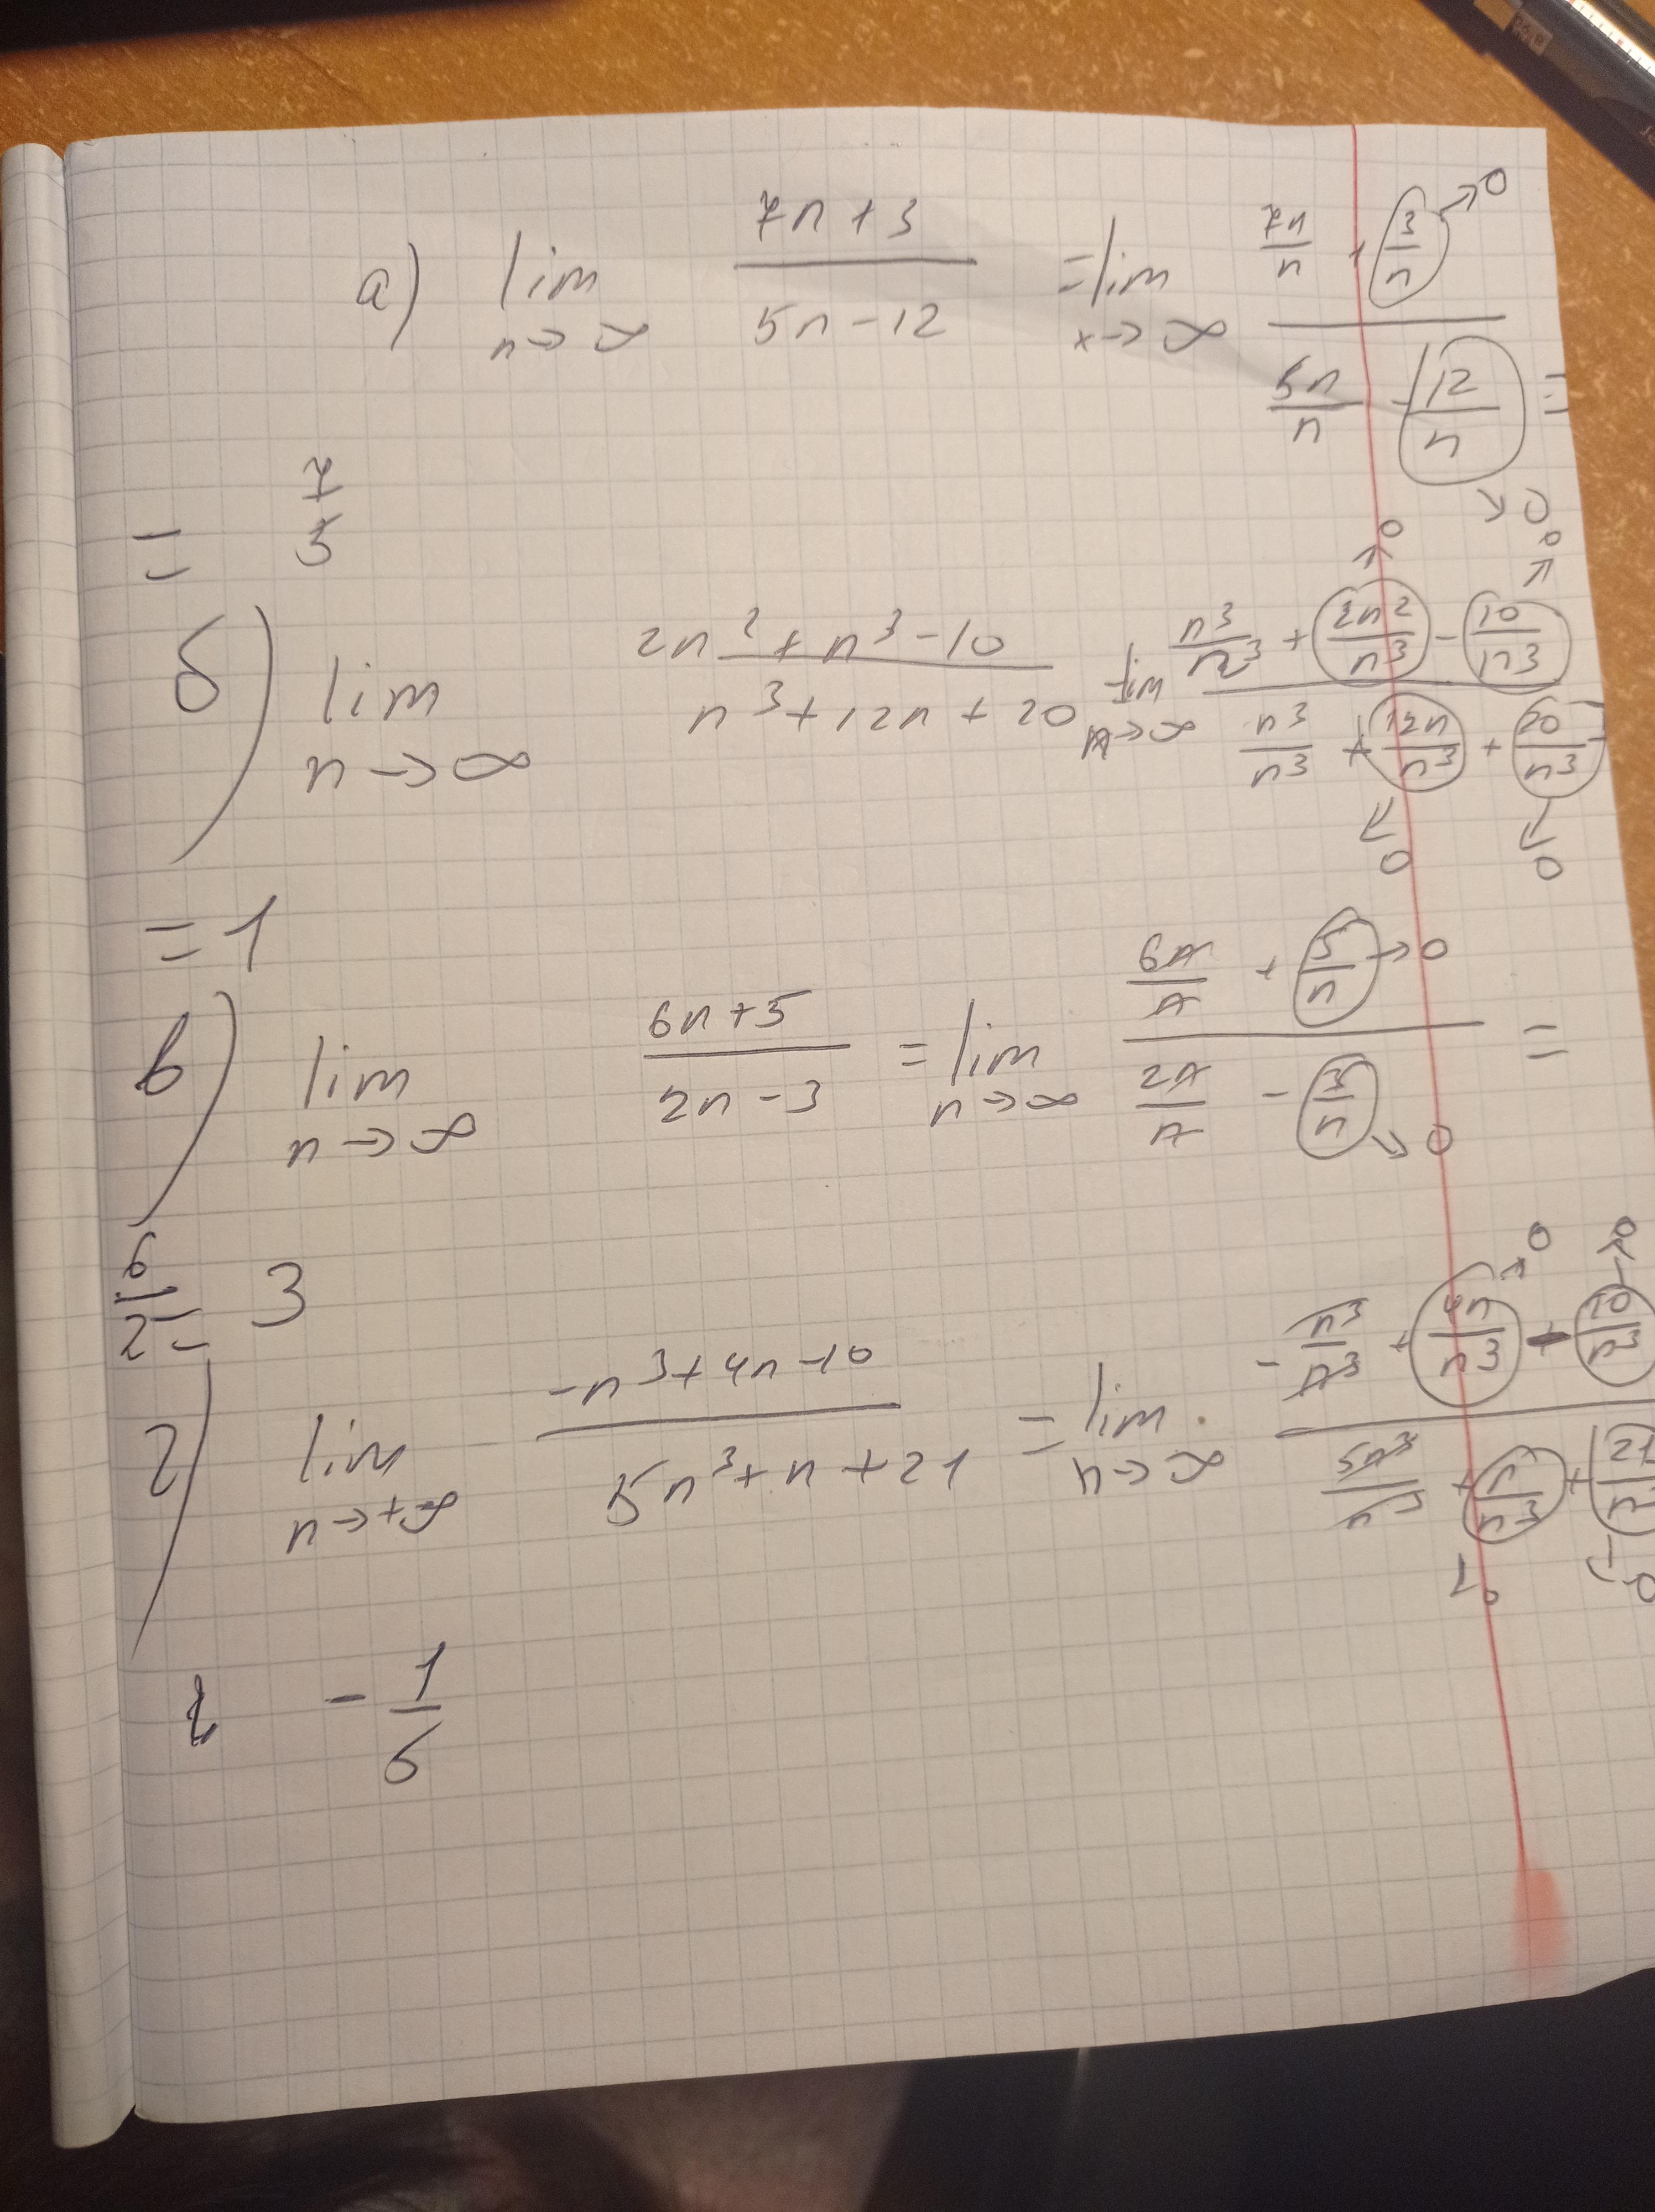 а) lim n→∞ (7n+3)/(5n-12) = lim x→∞ (7n/n + 3/n →0)/(5n/n - 12/n →0) =
= 7/5
б) lim n→∞ (2n²+n³-10)/(n³+12n+20) lim n→∞ (n³/n³ + 2n²/n³ →0 - 10/n³ →0)/(n³/n³ + 12n/n³ →0 + 20/n³ →0)
= 1
в) lim n→∞ (6n+5)/(2n-3) = lim n→∞ (6n/n + 5/n →0)/(2n/n - 3/n →0) =
6/2 = 3
г) lim n→+∞ (-n³+4n-10)/(5n³+n+21) = lim n→∞ (-n³/n³ + 4n/n³ →0 - 10/n³ →0)/(5n³/n³ + n/n³ →0 + 21/n³ →0)
- 1/6